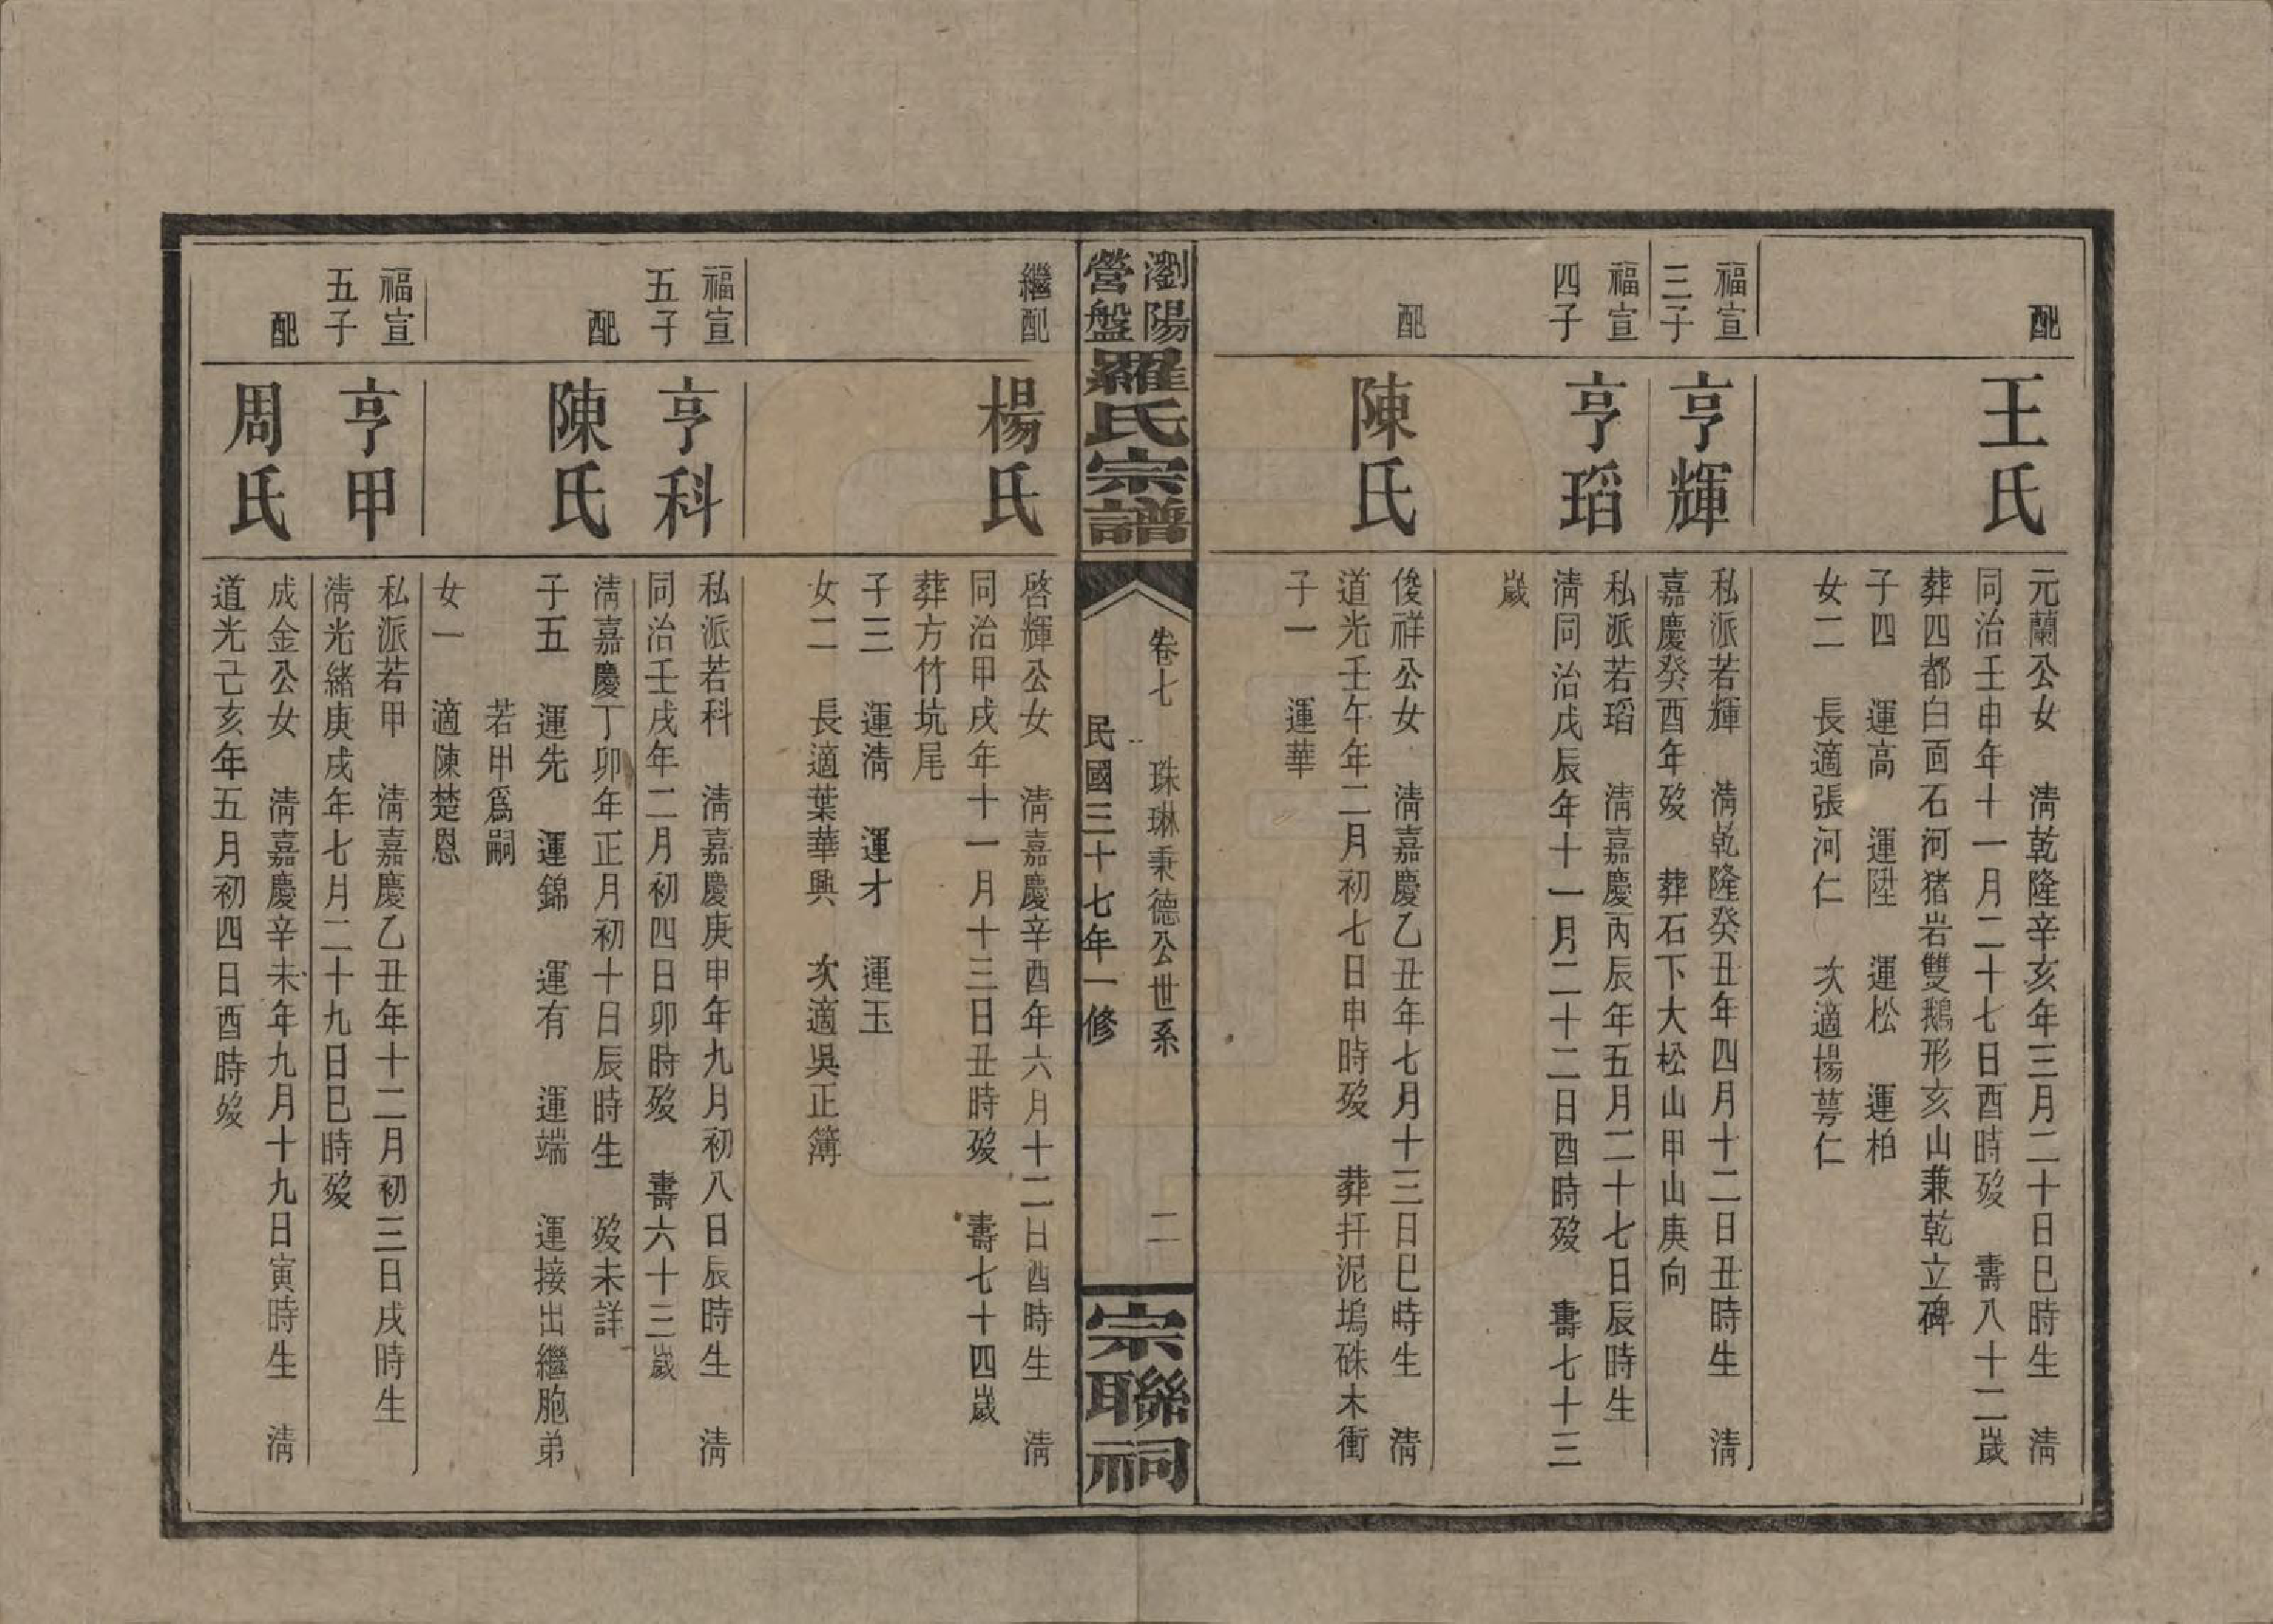 配
王氏
元蘭公女　清乾隆辛亥年三月二十日巳時生　清
同治壬申年十一月二十七日酉時歿　壽八十二歲
葬四都白面石河猪岩雙鵝形亥山兼乾立碑
子四　運高　運陞　運松　運柏
女二　長適張河仁　次適楊萼仁
福宣
三子
亨輝
私派若輝　清乾隆癸丑年四月十二日丑時生　清
嘉慶癸酉年歿　葬石下大松山甲山庚向
福宣
四子
亨瑫
私派若瑫　清嘉慶丙辰年五月二十七日辰時生
清同治戊辰年十一月二十二日酉時歿　壽七十三
歲
配
陳氏
俊祥公女　清嘉慶乙丑年七月十三日巳時生　清
道光壬午年二月初七日申時歿　葬扞泥塢硃木衝
子一　運華
瀏陽
營盤
羅氏宗譜
卷七　珠琳秉德公世系　二
民國三十七年一修
宗聯祠
繼配
楊氏
啓輝公女　清嘉慶辛酉年六月十二日酉時生　清
同治甲戌年十一月十三日丑時歿　壽七十四歲
葬方竹坑尾
子三　運清　運才　運玉
女二　長適葉華興　次適吳正簿
福宣
五子
亨科
私派若科　清嘉慶庚申年九月初八日辰時生　清
同治壬戌年二月初四日卯時歿　壽六十三歲
配
陳氏
清嘉慶丁卯年正月初十日辰時生　歿未詳
子五　運先　運錦　運有　運端　運接出繼胞弟
若甲爲嗣
女一　適陳楚恩
福宣
五子
亨甲
私派若甲　清嘉慶乙丑年十二月初三日戌時生
清光緒庚戌年七月二十九日巳時歿
配
周氏
成金公女　清嘉慶辛未年九月十九日寅時生　清
道光己亥年五月初四日酉時歿